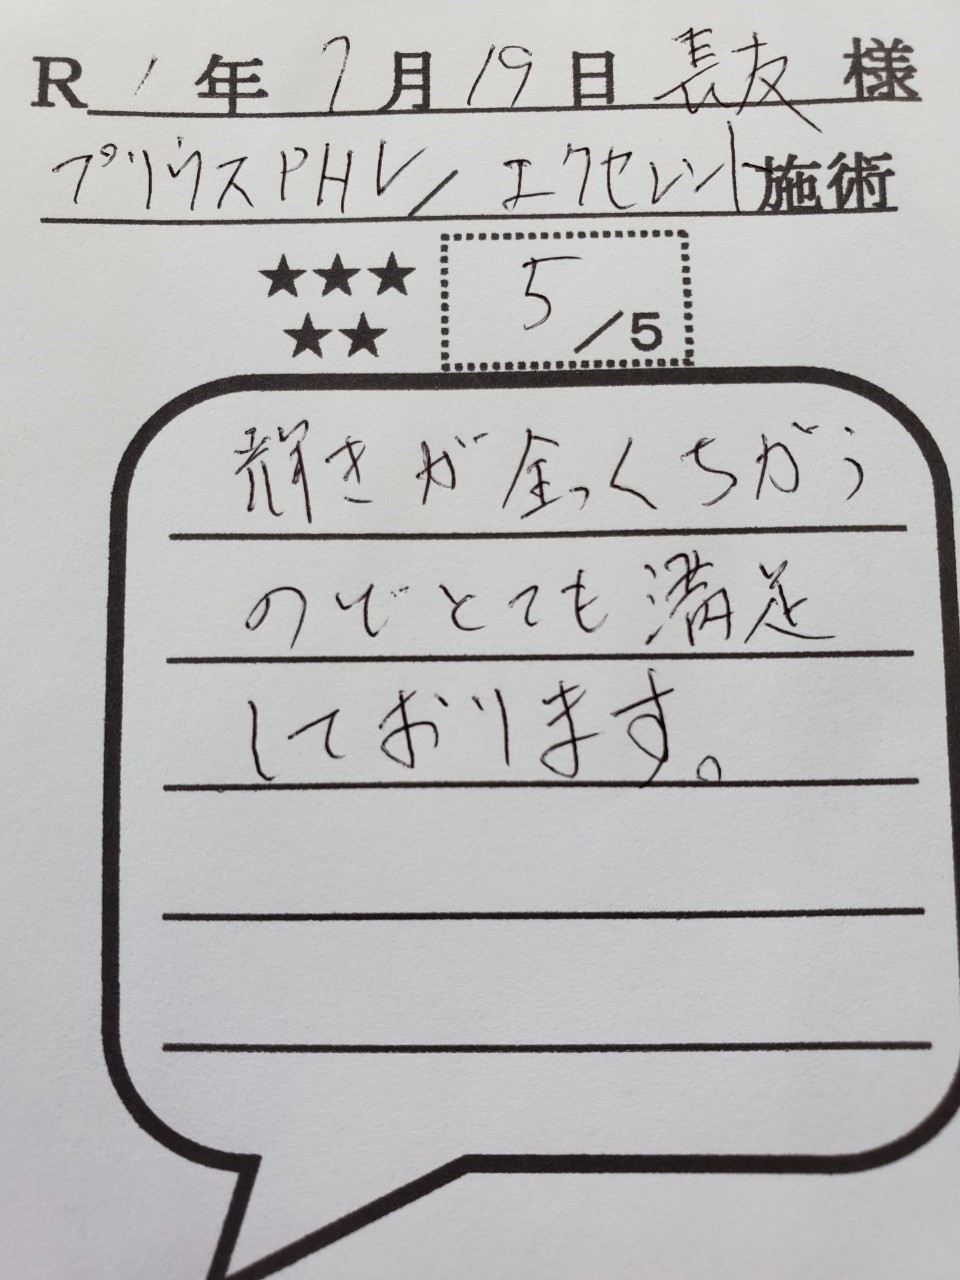 R 1年 7月 19日 長友 様
プリウスPHV/エクセレント施術
★★★
★★
5/5
輝きが全っくちがう
のでとても満足
しております。